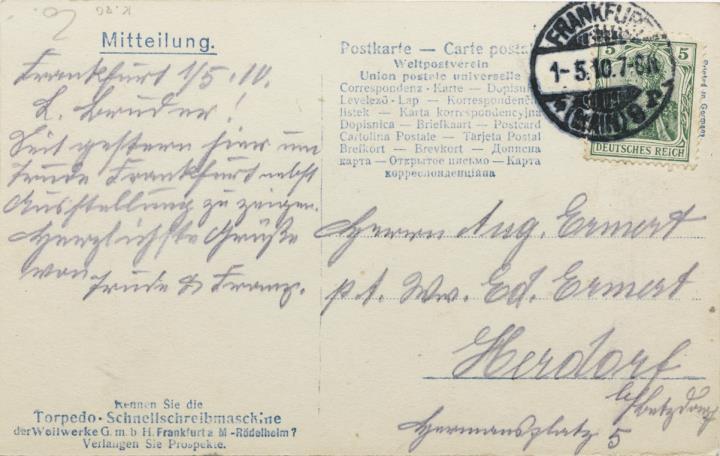 K. 26
Mitteilung.
Frankfurt 1/5.10.
L. Bruder!
Seit gestern hier um
Trude Frankfurt nebst
Ausstellung zu zeigen.
Herzlichste Grüße
von
Trude & Franz.
Kennen Sie die
Torpedo-Schnellschreibmaschine
der Weilwerke G. m. b. H. Frankfurt a M -Rödelheim?
Verlangen Sie Prospekte.
Postkarte — Carte postale
Weltpostverein
Union postale universelle
Correspondenz-Karte — Dopisnice
Levelező-Lap — Korrespondenčni
listek — Karta korrespondencyjna
Dopisnica — Briefkaart — Postcard
Cartolina Postale — Tarjeta Postal
Brefkort — Brevkort — Дописна
карта — Открытое письмо — Карта
корреспонденціина
FRANKFURT
1-5.10.7-8N
(MAIN) 9
5 5
DEUTSCHES REICH
Printed in Germany
Herrn Aug. Ermert
p. A. Ww. Ed. Ermert
Herdorf
b/Betzdorf
Hermansplatz 5